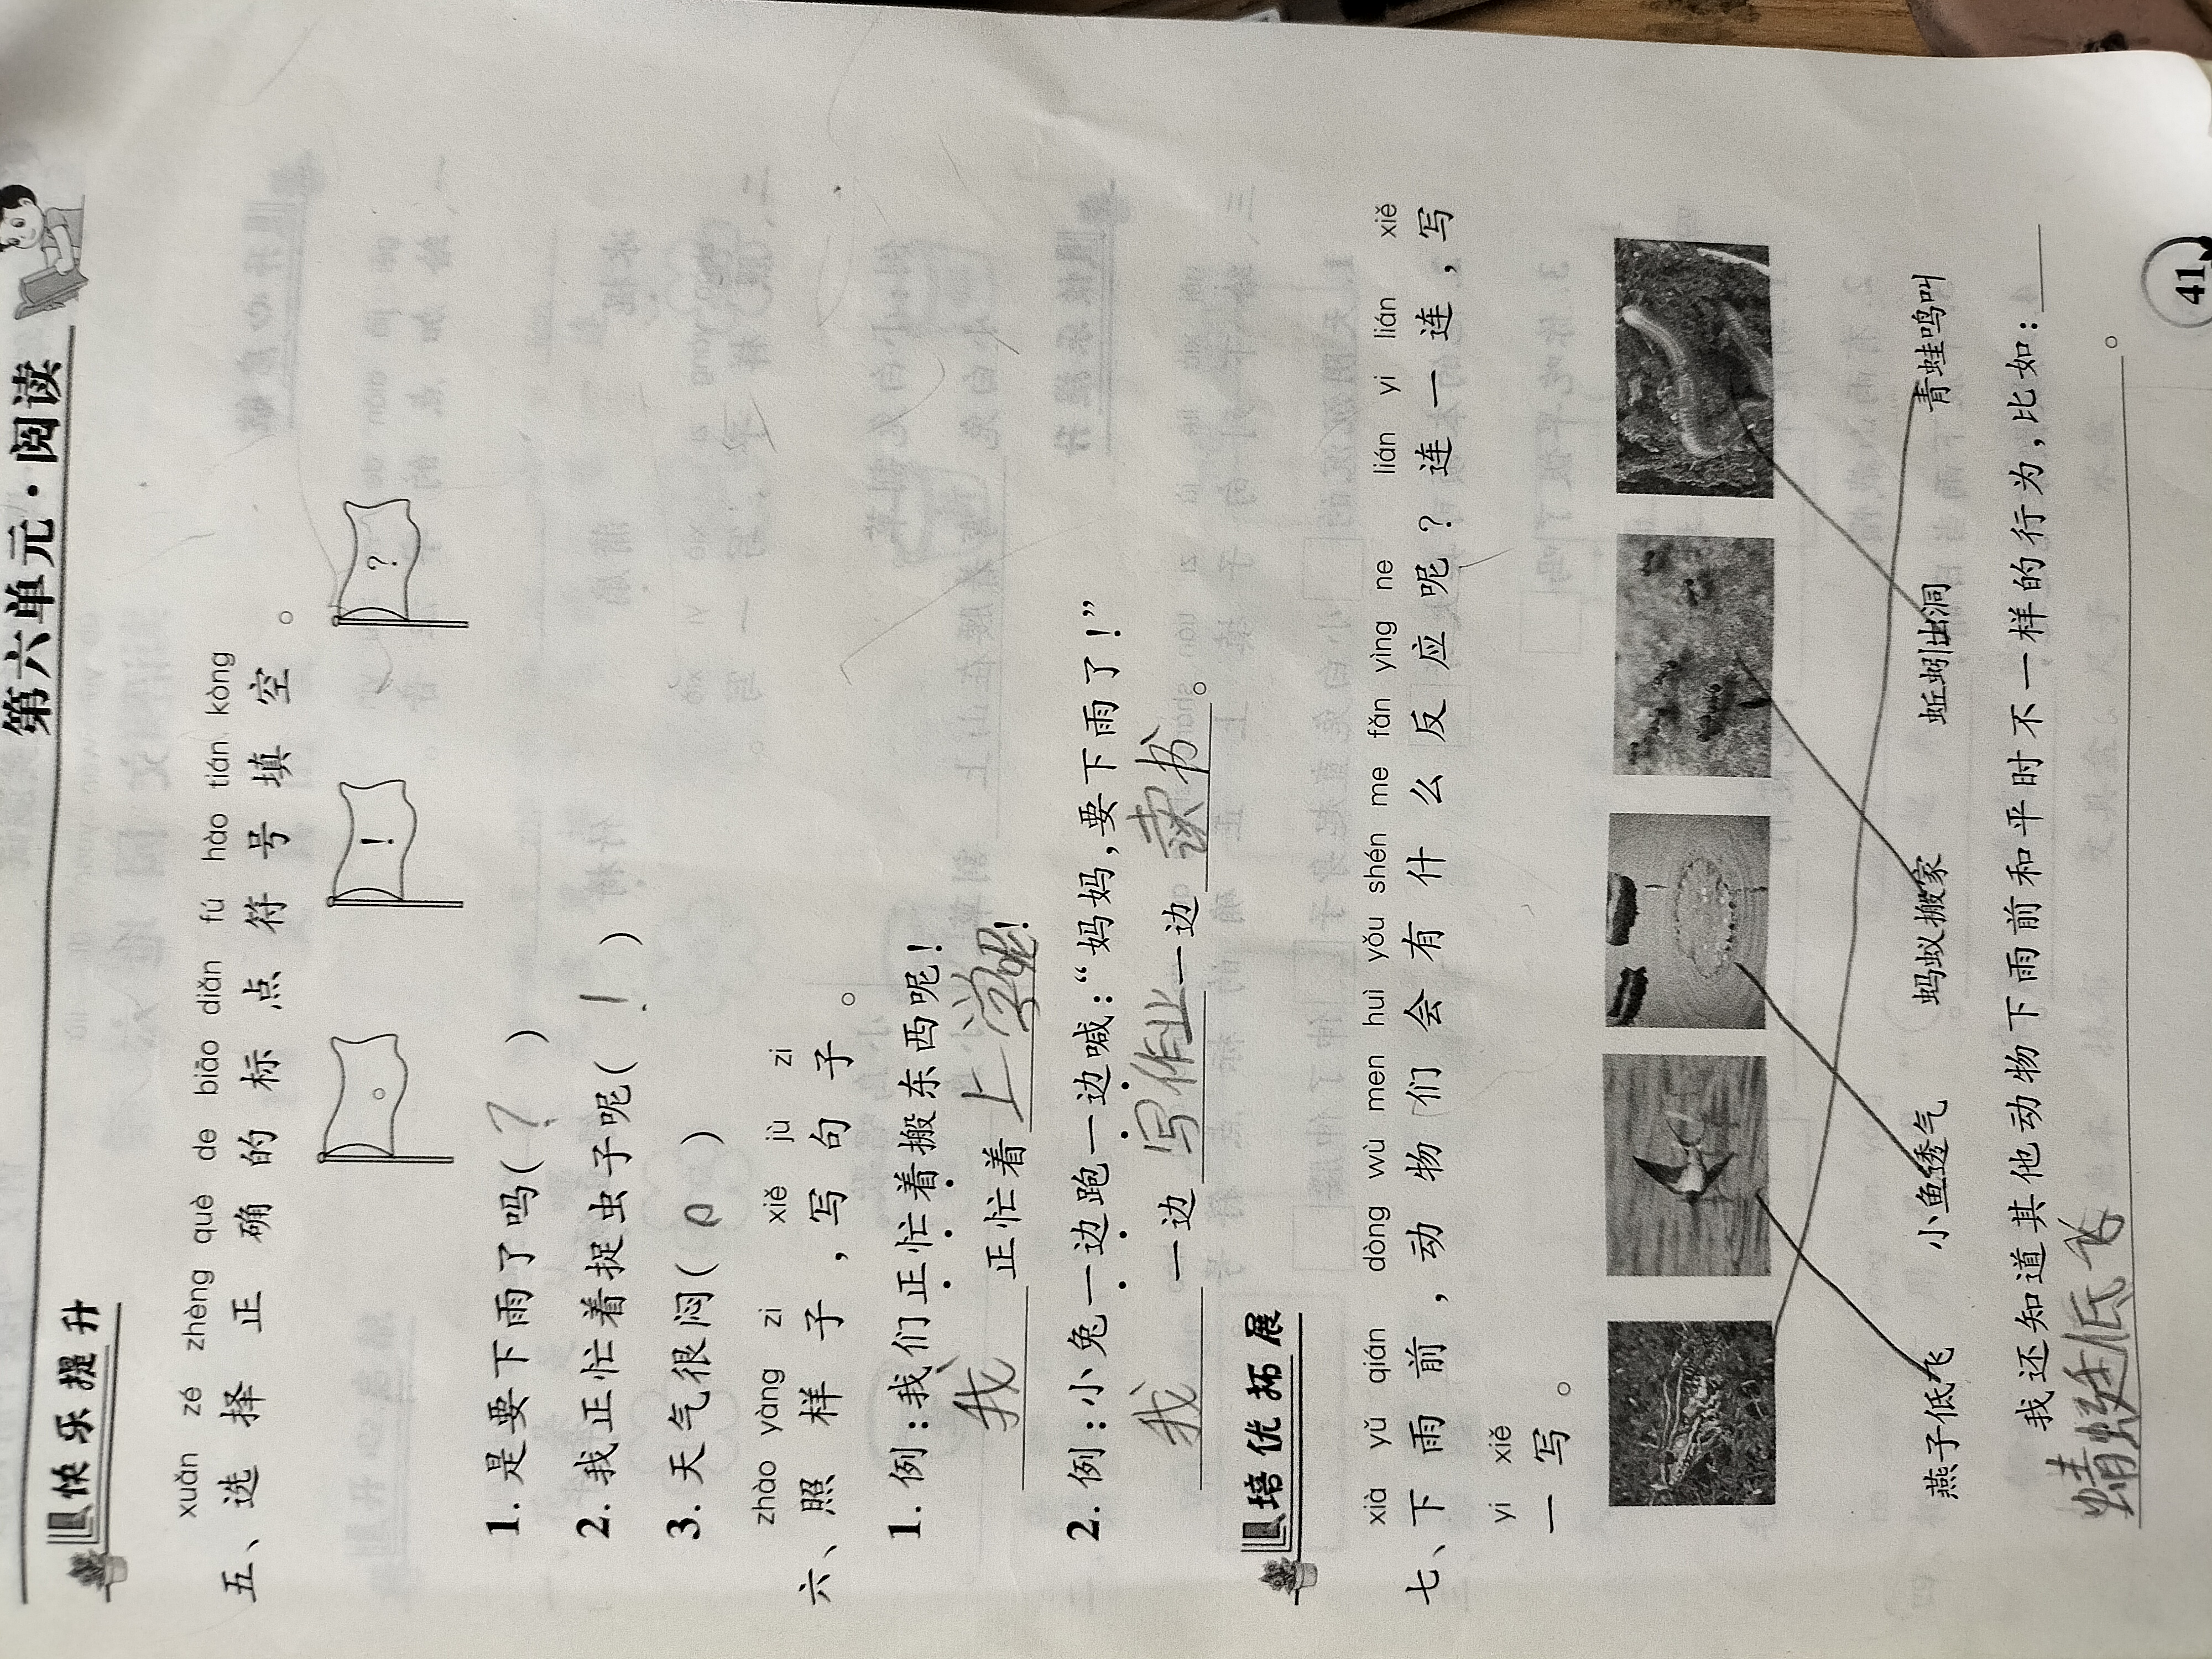 第六单元·阅读
快乐提升
xuǎn zé zhèng què de biāo diǎn fú hào tián kòng
五、选择正确的标点符号填空。
。 ! ?
1.是要下雨了吗(?)
2.我正忙着捉虫子呢(!)
3.天气很闷(。)
zhào yàng zi xiě jù zi
六、照样子,写句子。
1.例:我们正忙着搬东西呢!
我正忙着上学呢!
2.例:小兔一边跑一边喊:“妈妈,要下雨了!”
我一边写作业一边读书。
培优拓展
xià yǔ qián dòng wù men huì yǒu shén me fǎn yìng ne lián yi lián xiě
七、下雨前,动物们会有什么反应呢?连一连,写
yi xiě
一写。
燕子低飞 小鱼透气 蚂蚁搬家 蚯蚓出洞 青蛙鸣叫
我还知道其他动物下雨前和平时不一样的行为,比如:
蜻蜓低飞。
41